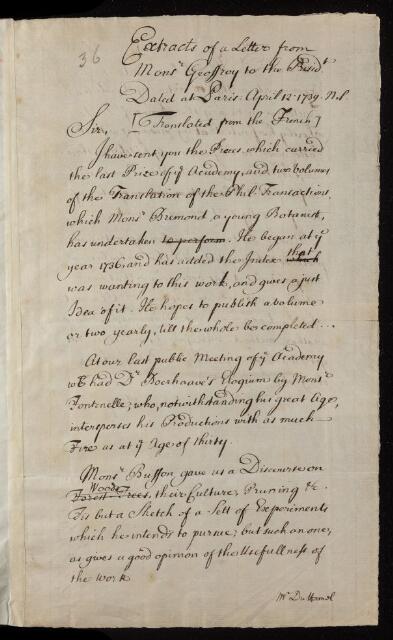 36
Extracts of a Letter from
Monsr Geoffroy to the Presidt
Dated at Paris April 12 1739. N.S.
Sir, [Translated from the French]
I have sent you the Pieces which carried
the last Prize of ye Academy, and two Volumes
of the Translation of the Phil. Transactions,
which Monsr Bremond, a young Botanist,
has undertaken to perform. He began at ye
year 1736 and has added the Index that which
was wanting to this work, and gives a just
Idea of it. He hopes to publish a volume
or two yearly, till the whole be completed ...
At our last public Meeting of ye Academy
we had Dr Boerhaave's Elogium by Monsr
Fontenelle; who, notwithstanding his great Age,
intersperses his Productions with as much
Fire as at ye Age of thirty.
Monsr Buffon gave us a Discourse on
Woods
Forest Trees, their Culture, Pruning &c.
Tis but a Sketch of a Sett of Experiments
which he intends to pursue; but such an one,
as gives a good opinion of the Usefullness of
the work
Mr Du Hamel